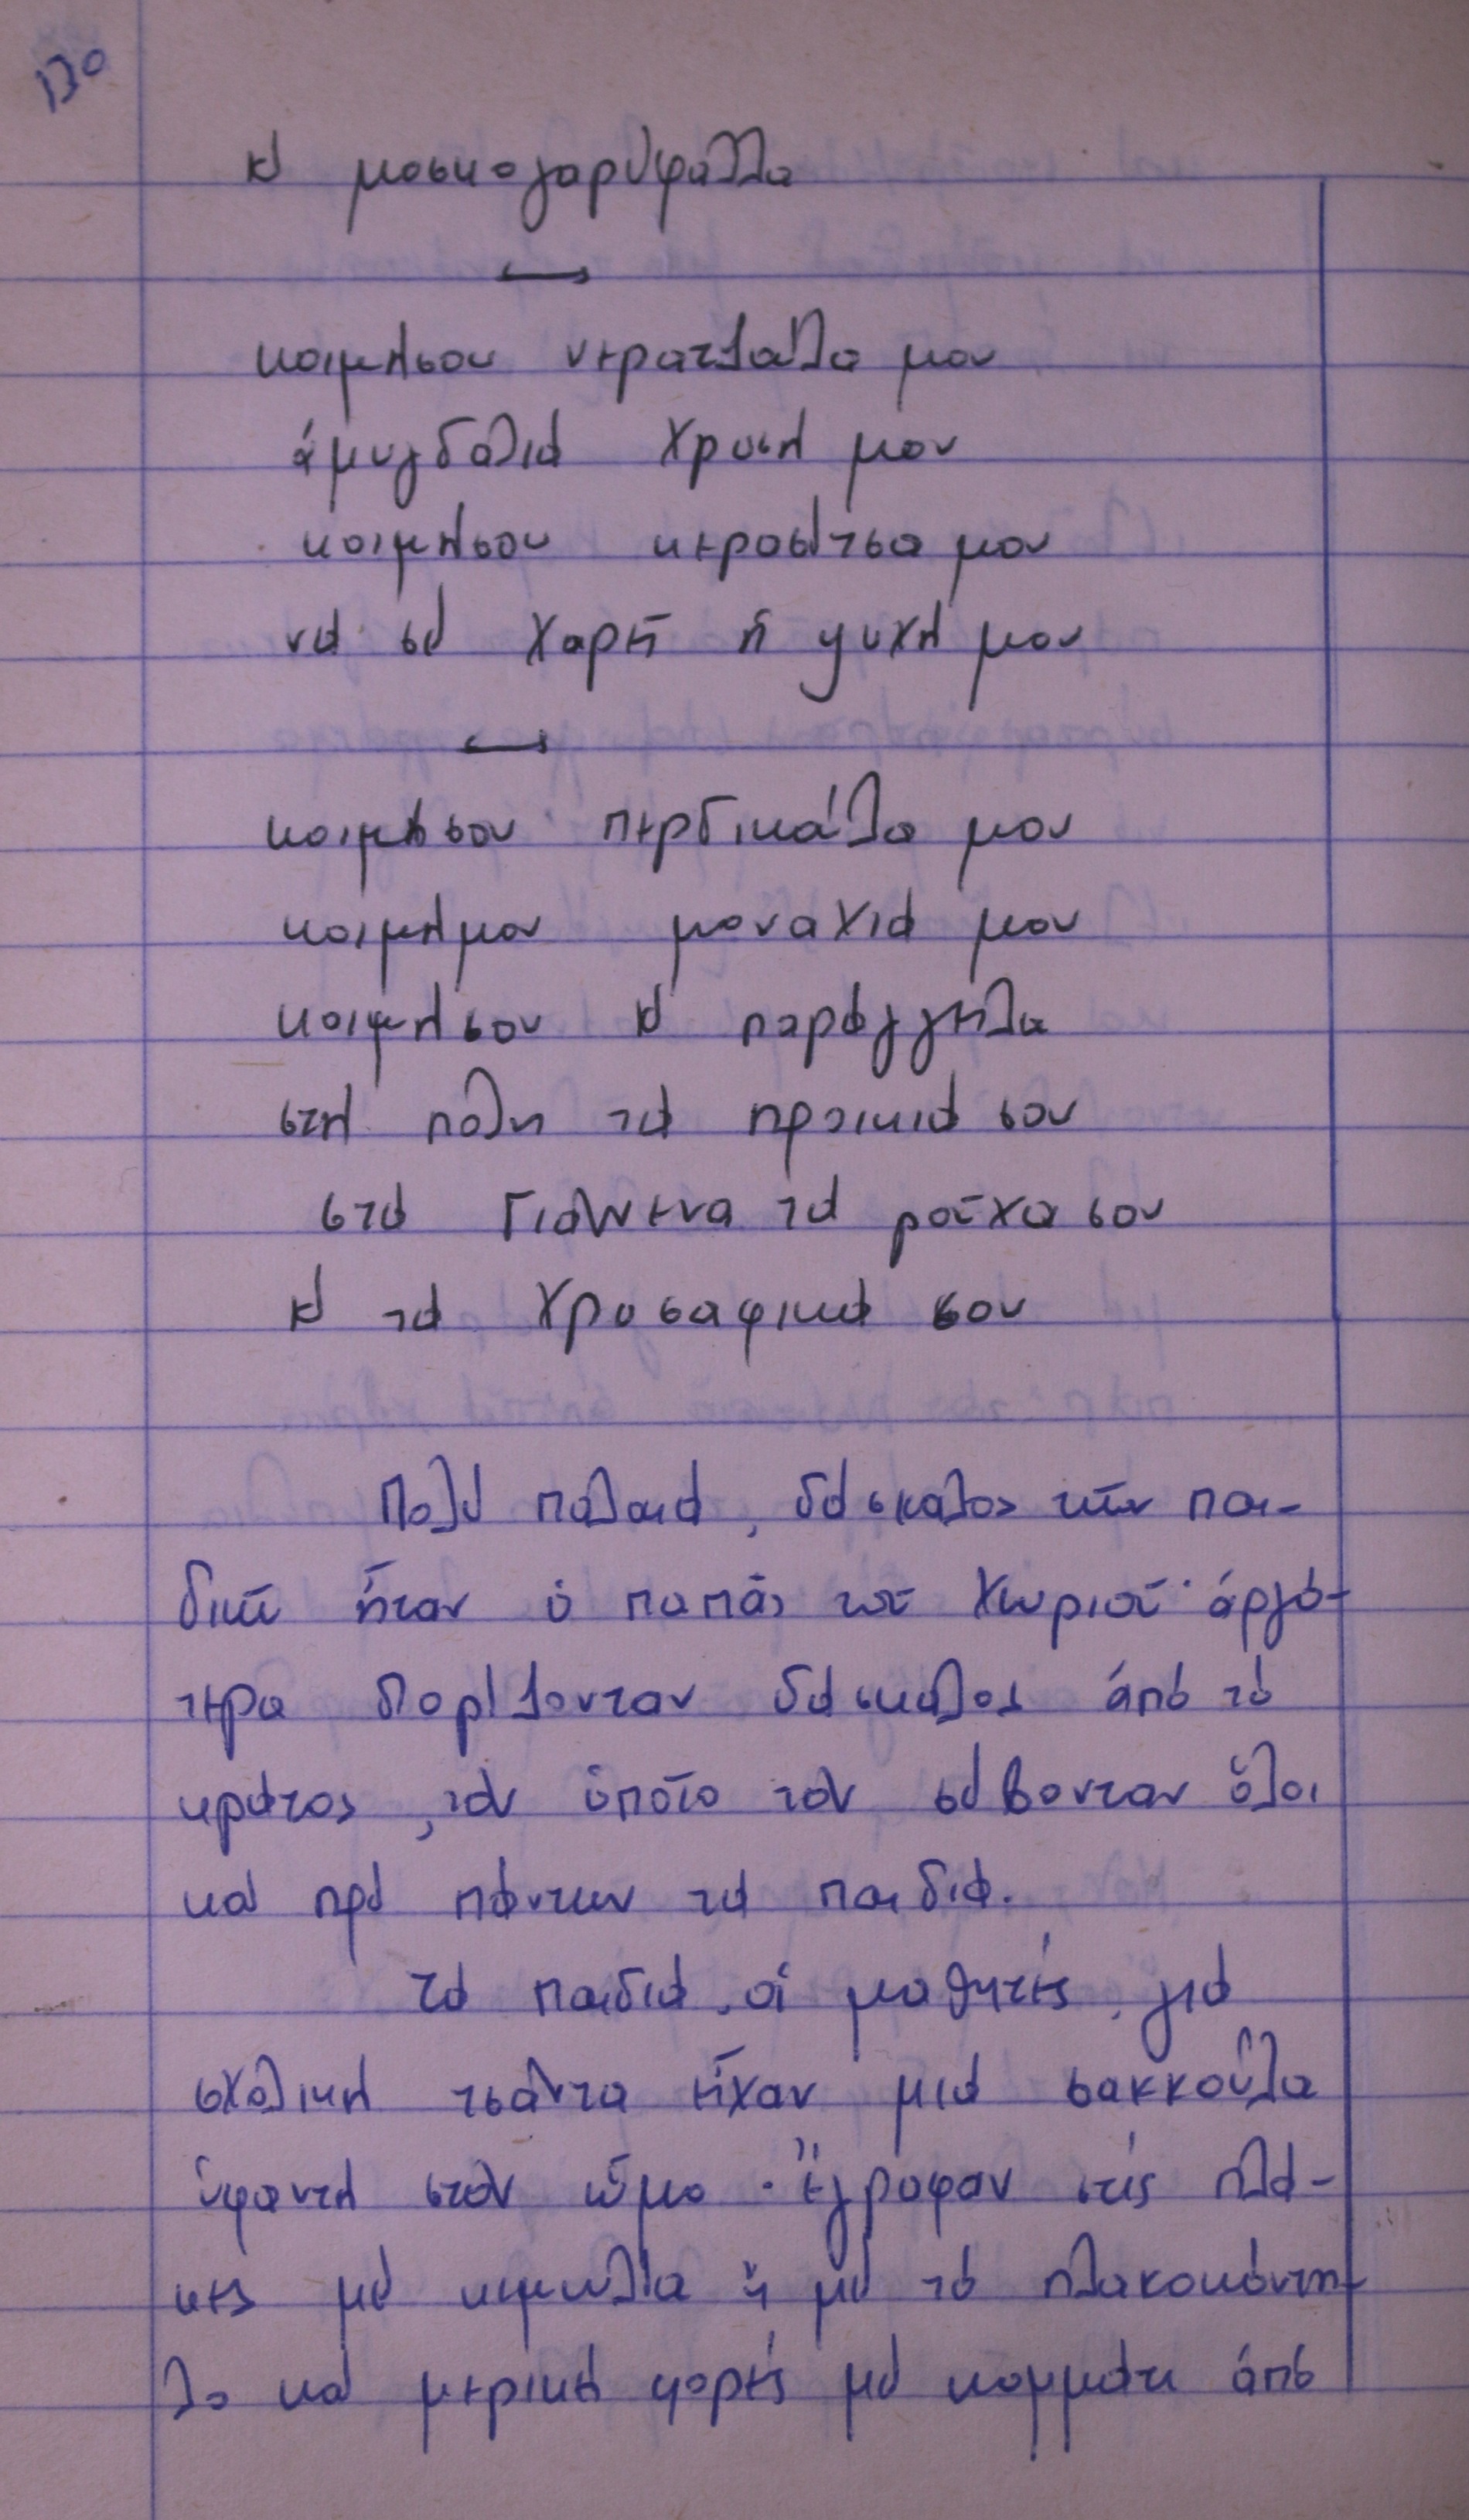 130
κι μοσκογαρύφαλλα
κοιμήσου νερατζούλα μου
ἀμυγδαλιά χρυσή μου
κοιμήσου κερασίτσα μου
νά σέ χαρῆ ἡ ψυχή μου
κοιμήσου περδικούλα μου
κοιμήμου μοναχιά μου
κοιμήσου κι παράγγειλα
στή πόλη τά προικιά σου
στά Γιάννενα τά ροῦχα σου
κι τά χρυσαφικά σου
Πολύ παλαιά, δάσκαλος τῶν παι-
διῶν ἦταν ὁ παπᾶς τοῦ χωριοῦ· ἀργό-
τερα διορίζονταν δάσκαλος ἀπό τό
κράτος, τόν ὁποῖο τόν σέβονταν ὅλοι
καί πρό πάντων τά παιδιά.
Τά παιδιά, οἱ μαθητές, γιά
σχολική τσάντα εἶχαν μιά σακκοῦλα
ὑφαντή στόν ὦμο. Ἔγραφαν στίς πλά-
κες μέ κιμωλία ἤ μέ τό πλακοκόντη-
λο καί μερικές φορές μέ κομμάτι ἀπό